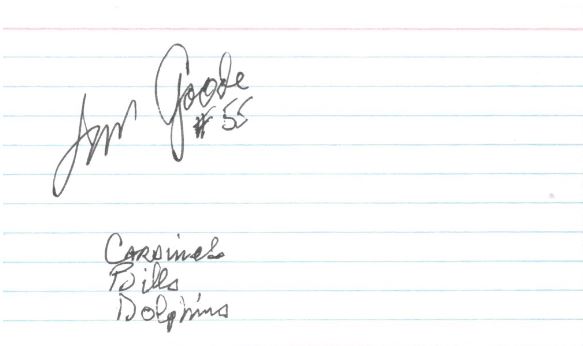 Irv Goode
# 55
Cardinals
Bills
Dolphins